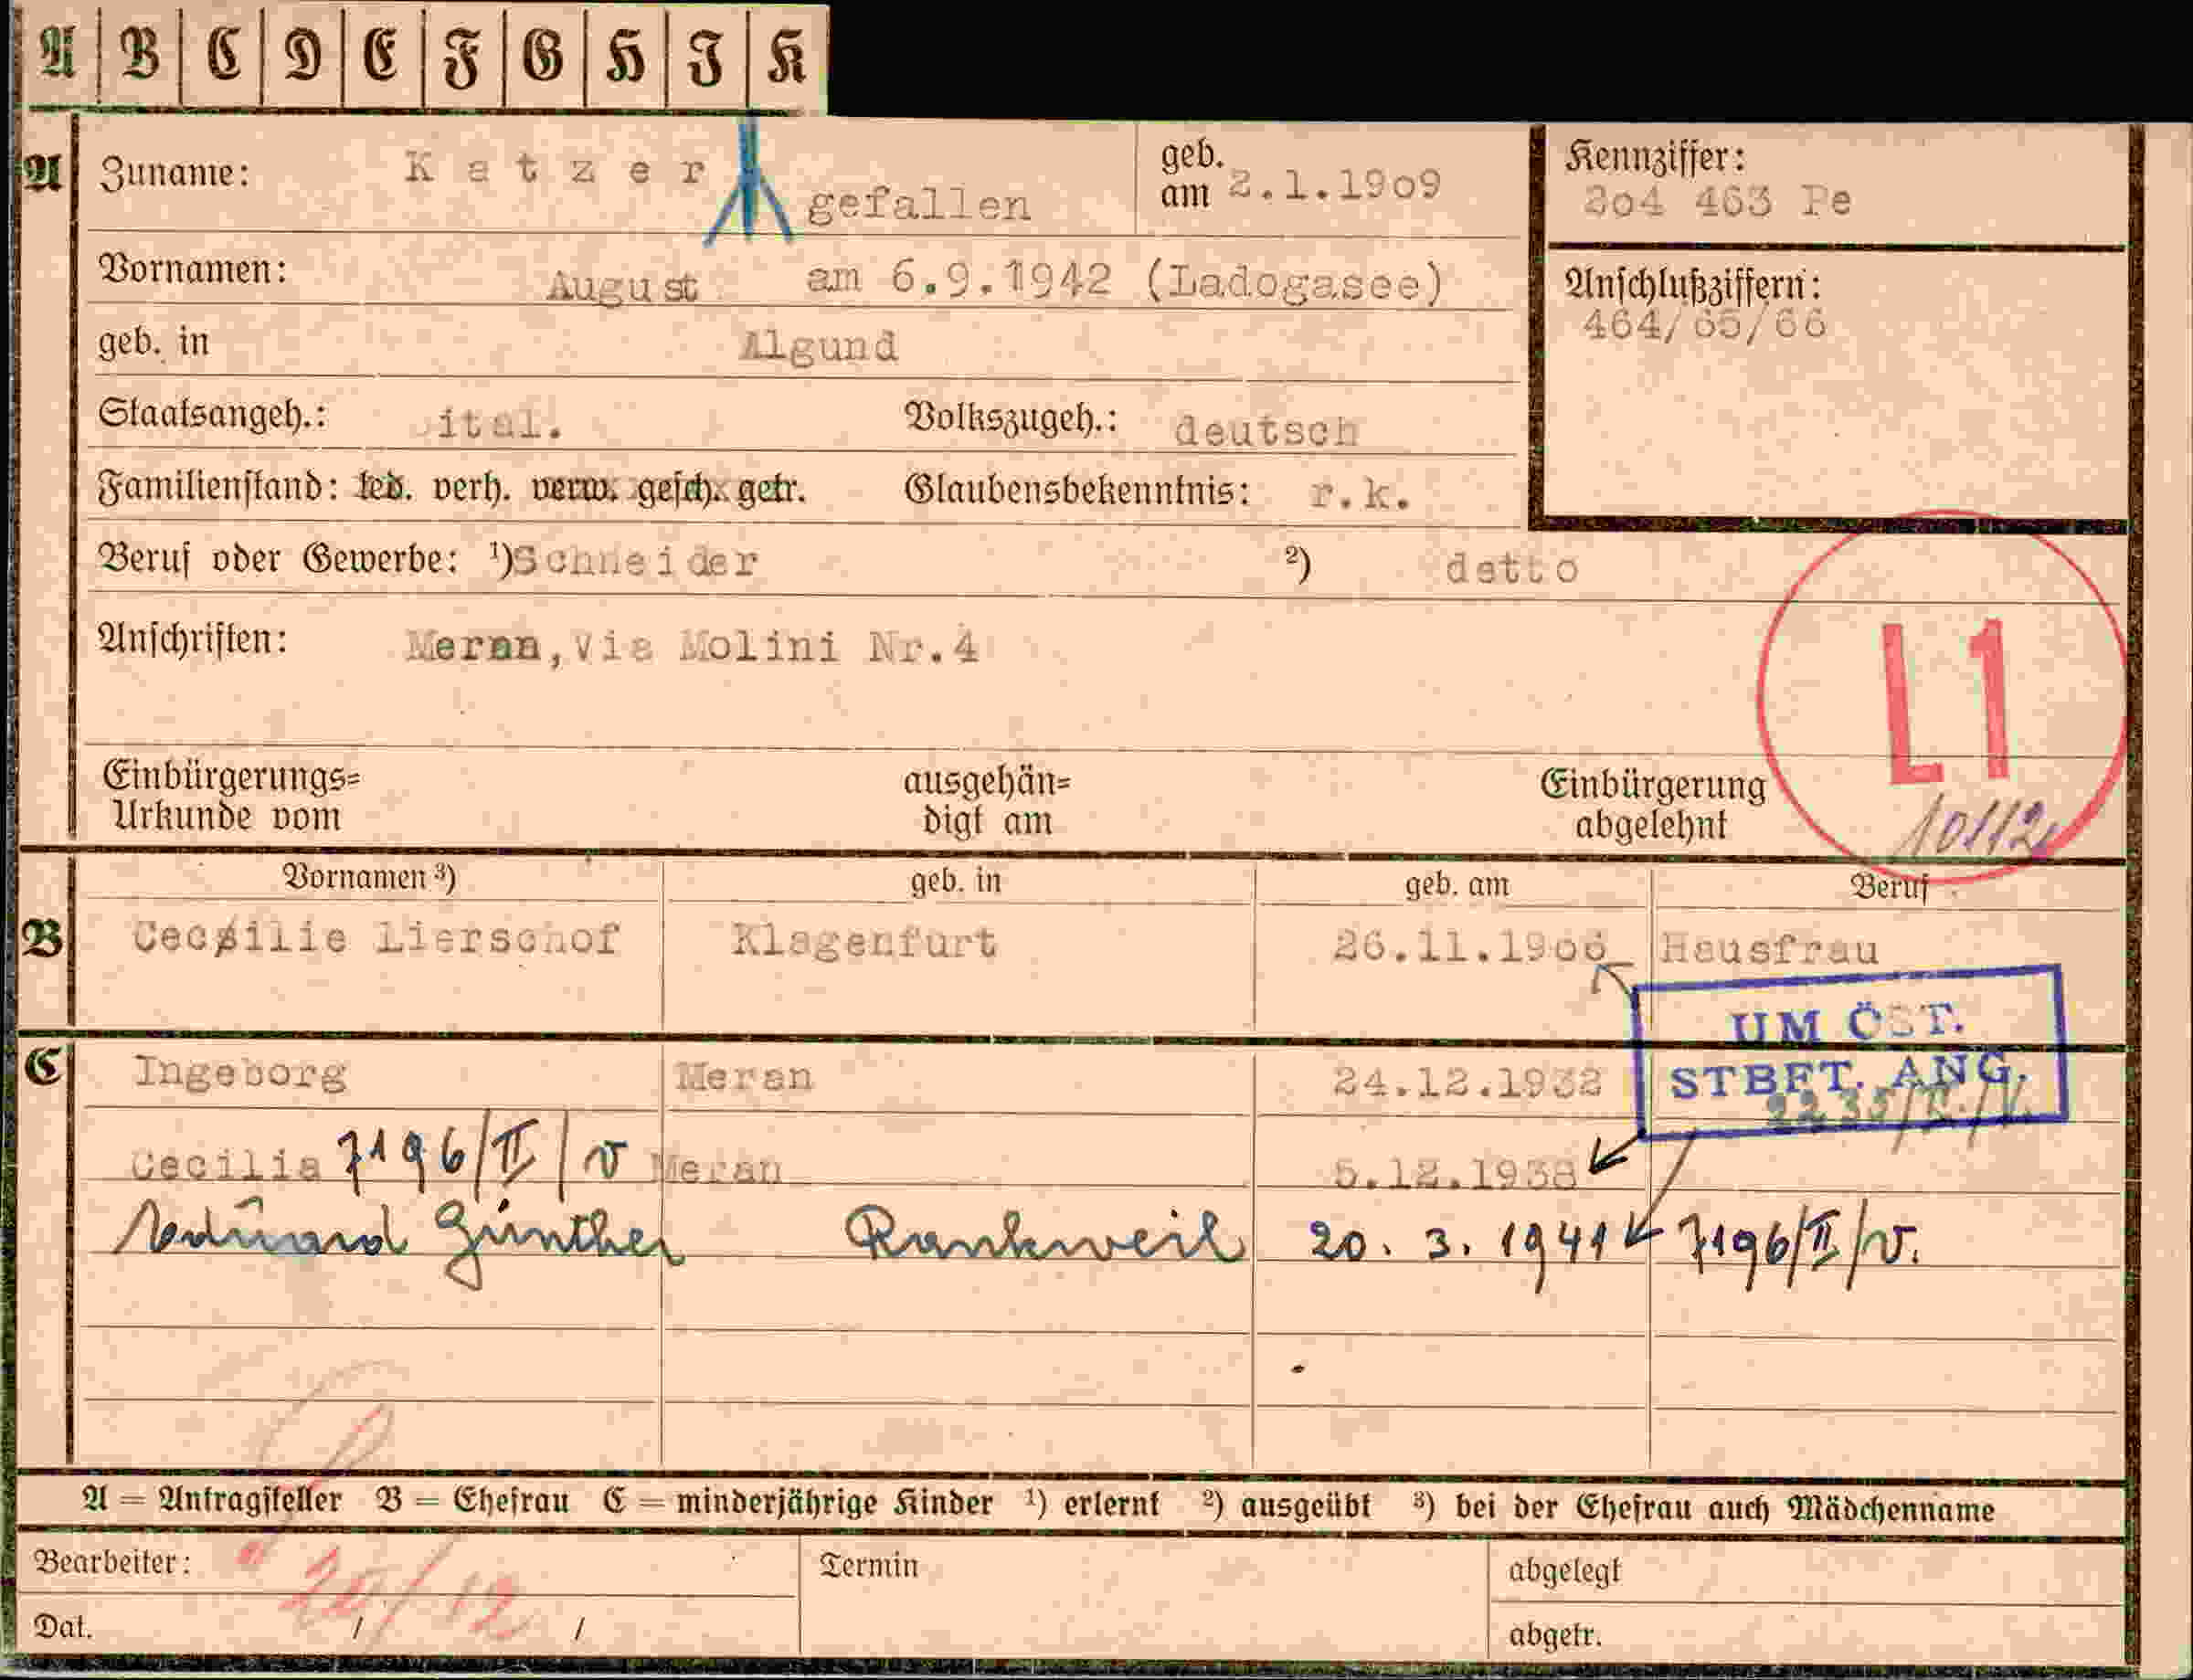 A B C D E F G H I K
A Zuname: Katzer gefallen geb. am 2.1.1909
Kennziffer: 204 463 Pe
Vornamen: August am 6.9.1942 (Ladogasee)
Anschlußziffern: 464/65/66
geb. in Algund
Staatsangeh.: ital. Volkszugeh.: deutsch
Familienstand: led. verh. verw. gesch. getr. Glaubensbekenntnis: r.k.
Beruf oder Gewerbe: ¹) Schneider ²) detto
Anschriften: Meran, Via Molini Nr.4
L1
Einbürgerungs= ausgehän= Einbürgerung
Urkunde vom digt am abgelehnt
10112
Vornamen ³) geb. in geb. am Beruf
B Cecilie Lierschof Klagenfurt 26.11.1906 Hausfrau
UM ÖST.
STBFT. ANG.
C Ingeborg Meran 24.12.1932
Cecilia 7196/II/V Meran 5.12.1938
Eduard Günther Rankweil 20.3.1941 7196/II/V.
A = Antragsteller B = Ehefrau C = minderjährige Kinder ¹) erlernt ²) ausgeübt ³) bei der Ehefrau auch Mädchenname
Bearbeiter: Termin abgelegt
Dat. / / abgetr.